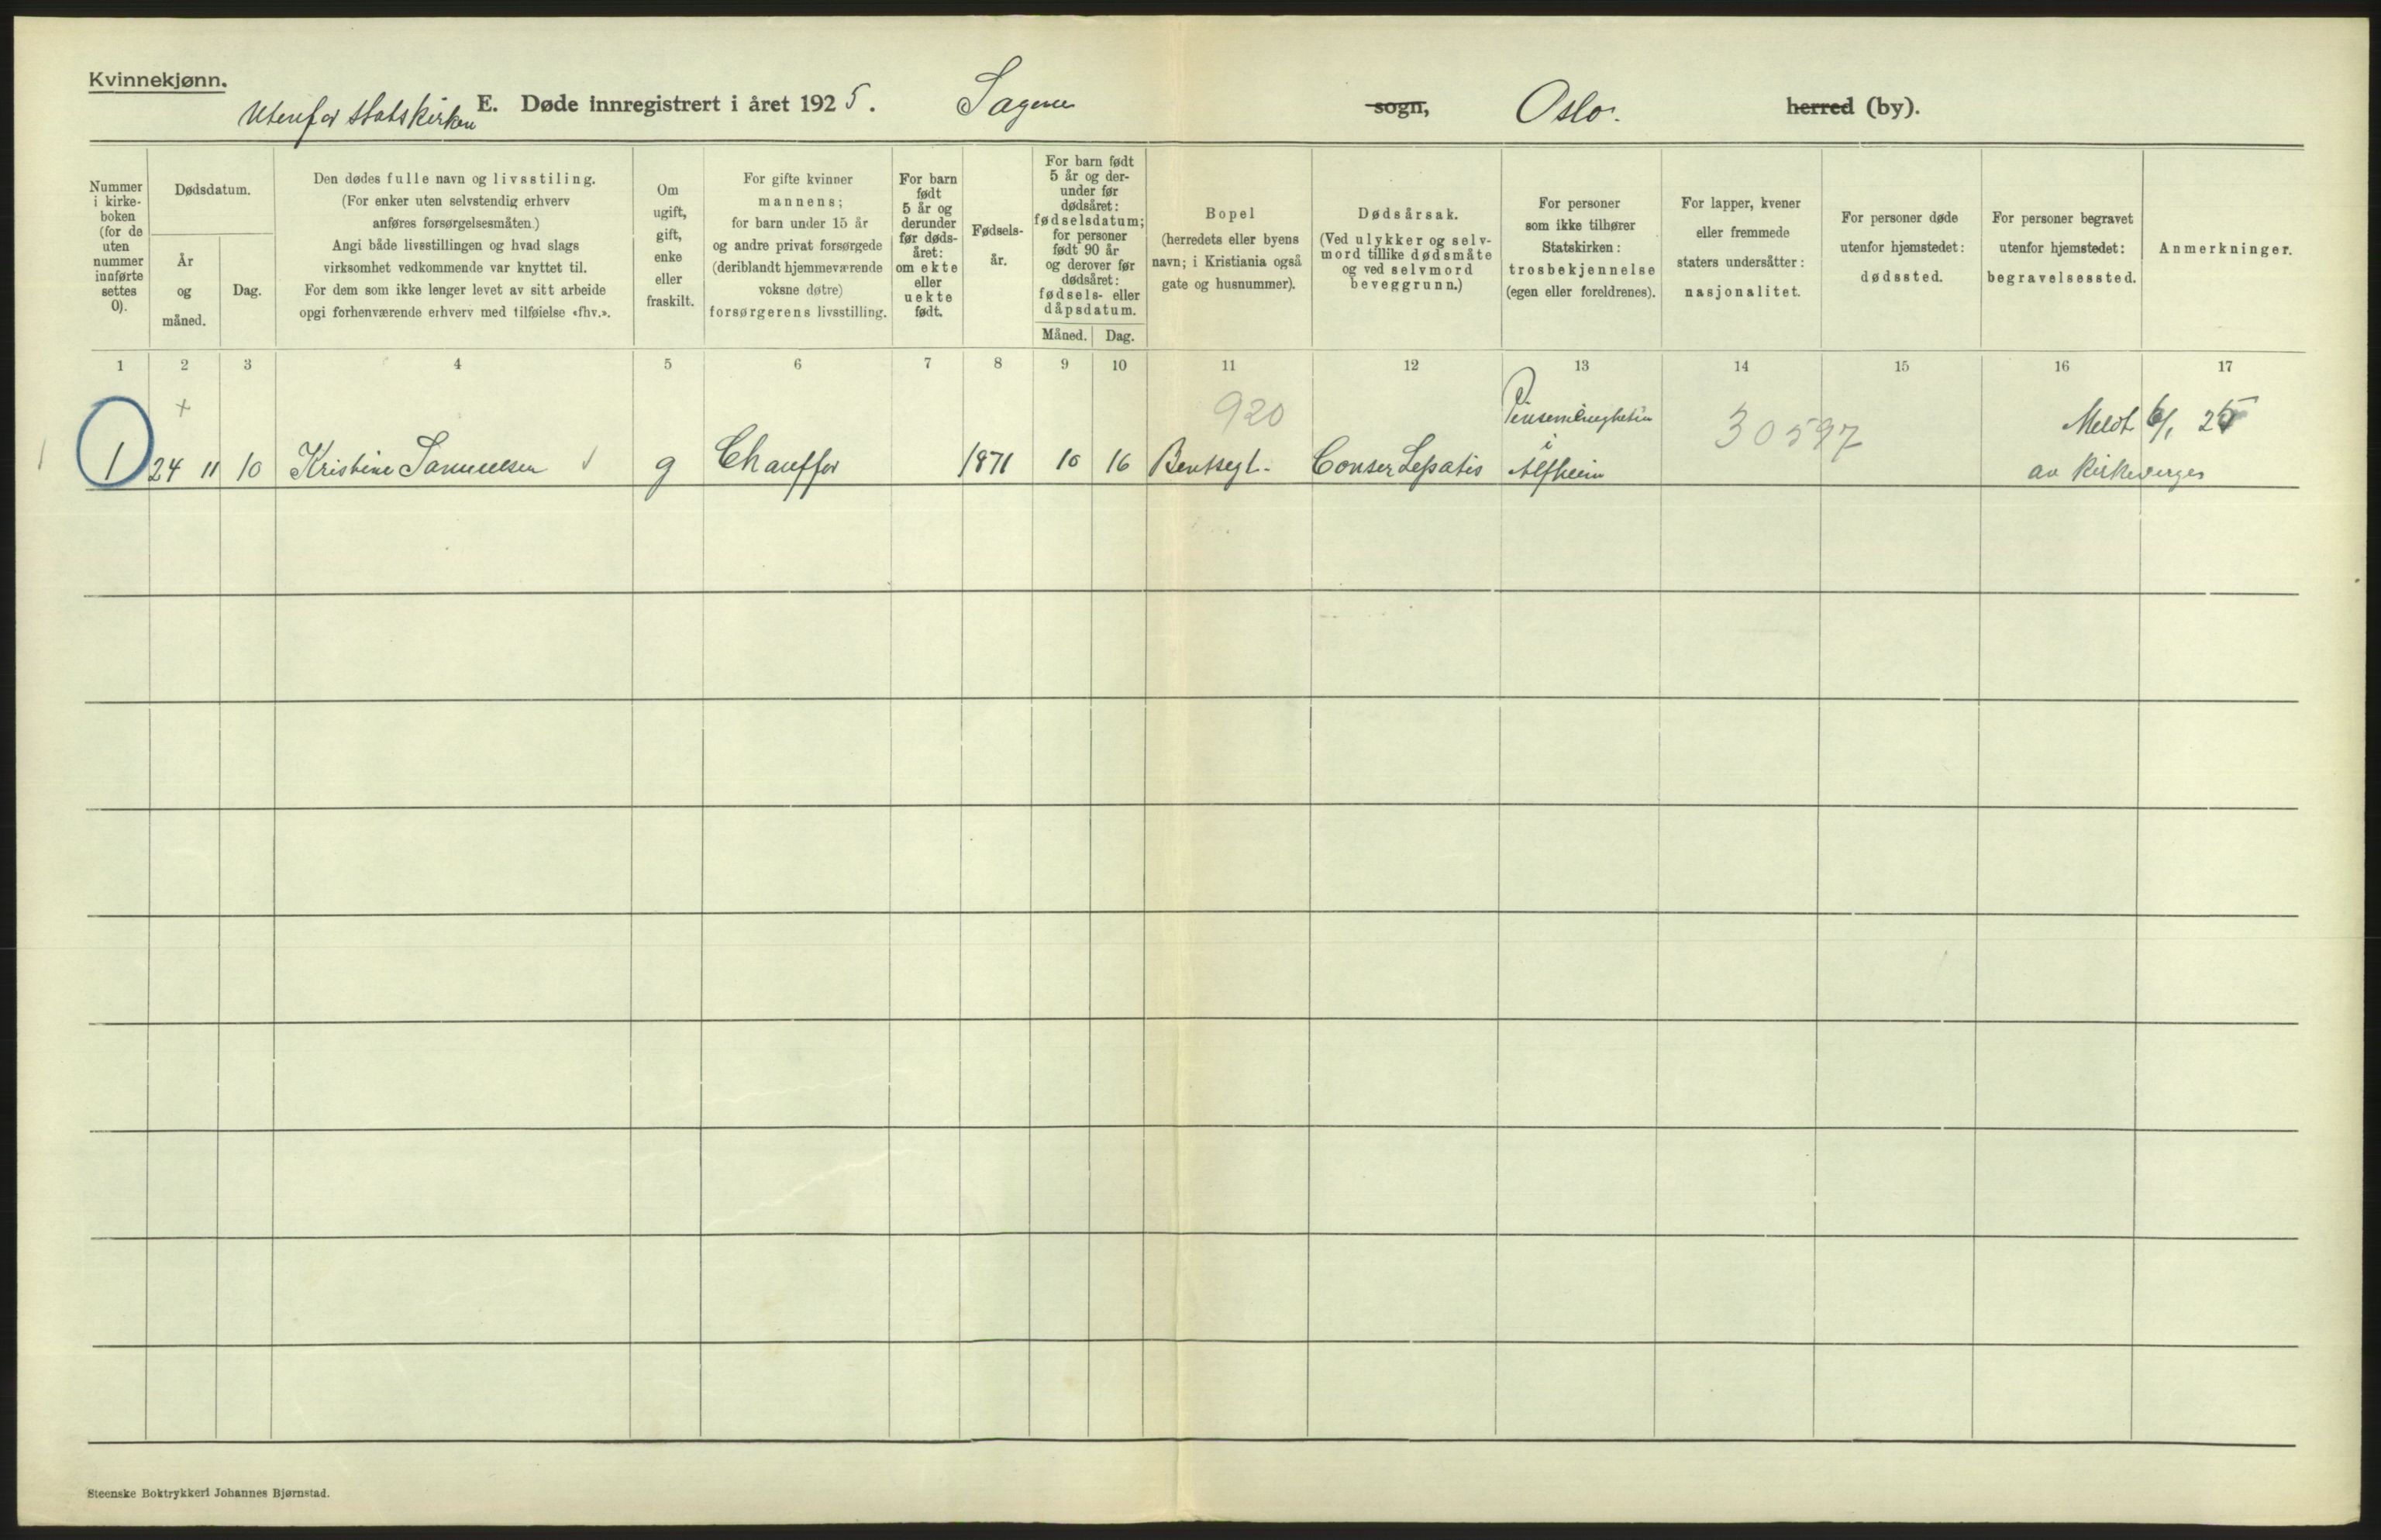 Kvinnekjønn.
Utenfor statskirken E. Døde innregistrert i året 1925. Sagene sogn, Oslo. herred (by).
Nummer
i kirke-
boken
(for de
uten
nummer
innførte
settes
0).
Dødsdatum.
År
og
måned.
Dag.
Den dødes fulle navn og livsstiling.
(For enker uten selvstendig erhverv
anføres forsørgelsesmåten.)
Angi både livsstillingen og hvad slags
virksomhet vedkommende var knyttet til.
For dem som ikke lenger levet av sitt arbeide
opgi forhenværende erhverv med tilføielse «fhv.».
Om
ugift,
gift,
enke
eller
fraskilt.
For gifte kvinner
mannens;
for barn under 15 år
og andre privat forsørgede
(deriblandt hjemmeværende
voksne døtre)
forsørgerens livsstilling.
For barn
født
5 år og
derunder
før døds-
året:
om ekte
eller
uekte
født.
Fødsels-
år.
For barn født
5 år og der-
under før
dødsåret:
fødselsdatum;
for personer
født 90 år
og derover før
dødsåret:
fødsels- eller
dåpsdatum.
Måned. Dag.
Bopel
(herredets eller byens
navn; i Kristiania også
gate og husnummer).
Dødsårsak.
(Ved ulykker og selv-
mord tillike dødsmåte
og ved selvmord
beveggrunn.)
For personer
som ikke tilhører
Statskirken:
trosbekjennelse
(egen eller foreldrenes).
For lapper, kvener
eller fremmede
staters undersåtter:
nasjonalitet.
For personer døde
utenfor hjemstedet:
dødssted.
For personer begravet
utenfor hjemstedet:
begravelsessted.
Anmerkninger.
1 2 3 4 5 6 7 8 9 10 11 12 13 14 15 16 17
+ 920 30597 Meldt 6/1 25
1 24 11 10 Kristine Samuelsen g Chauffør 1871 10 16 Bentsegt. i Alfheim av kirkeverges
Steenske Boktrykkeri Johannes Bjørnstad.